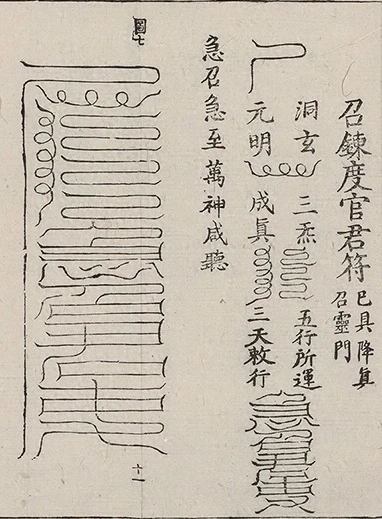 召鍊度官君符 已具降真召靈門
洞玄 三炁 五行所運
元明 成眞 三天敕行
急召急至萬神咸聽
圖七
十一